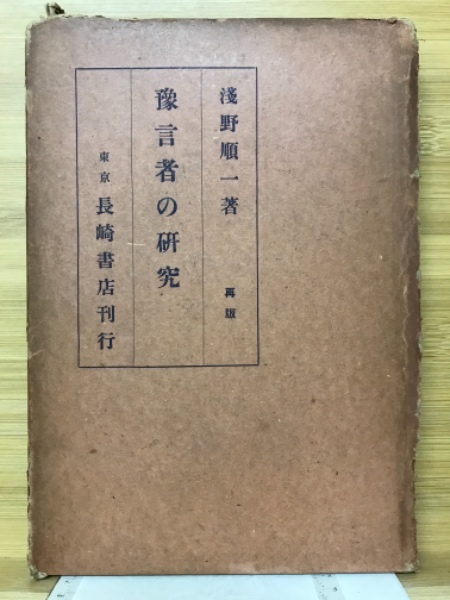 淺野順一著 再版
豫言者の硏究
東京 長崎書店刊行